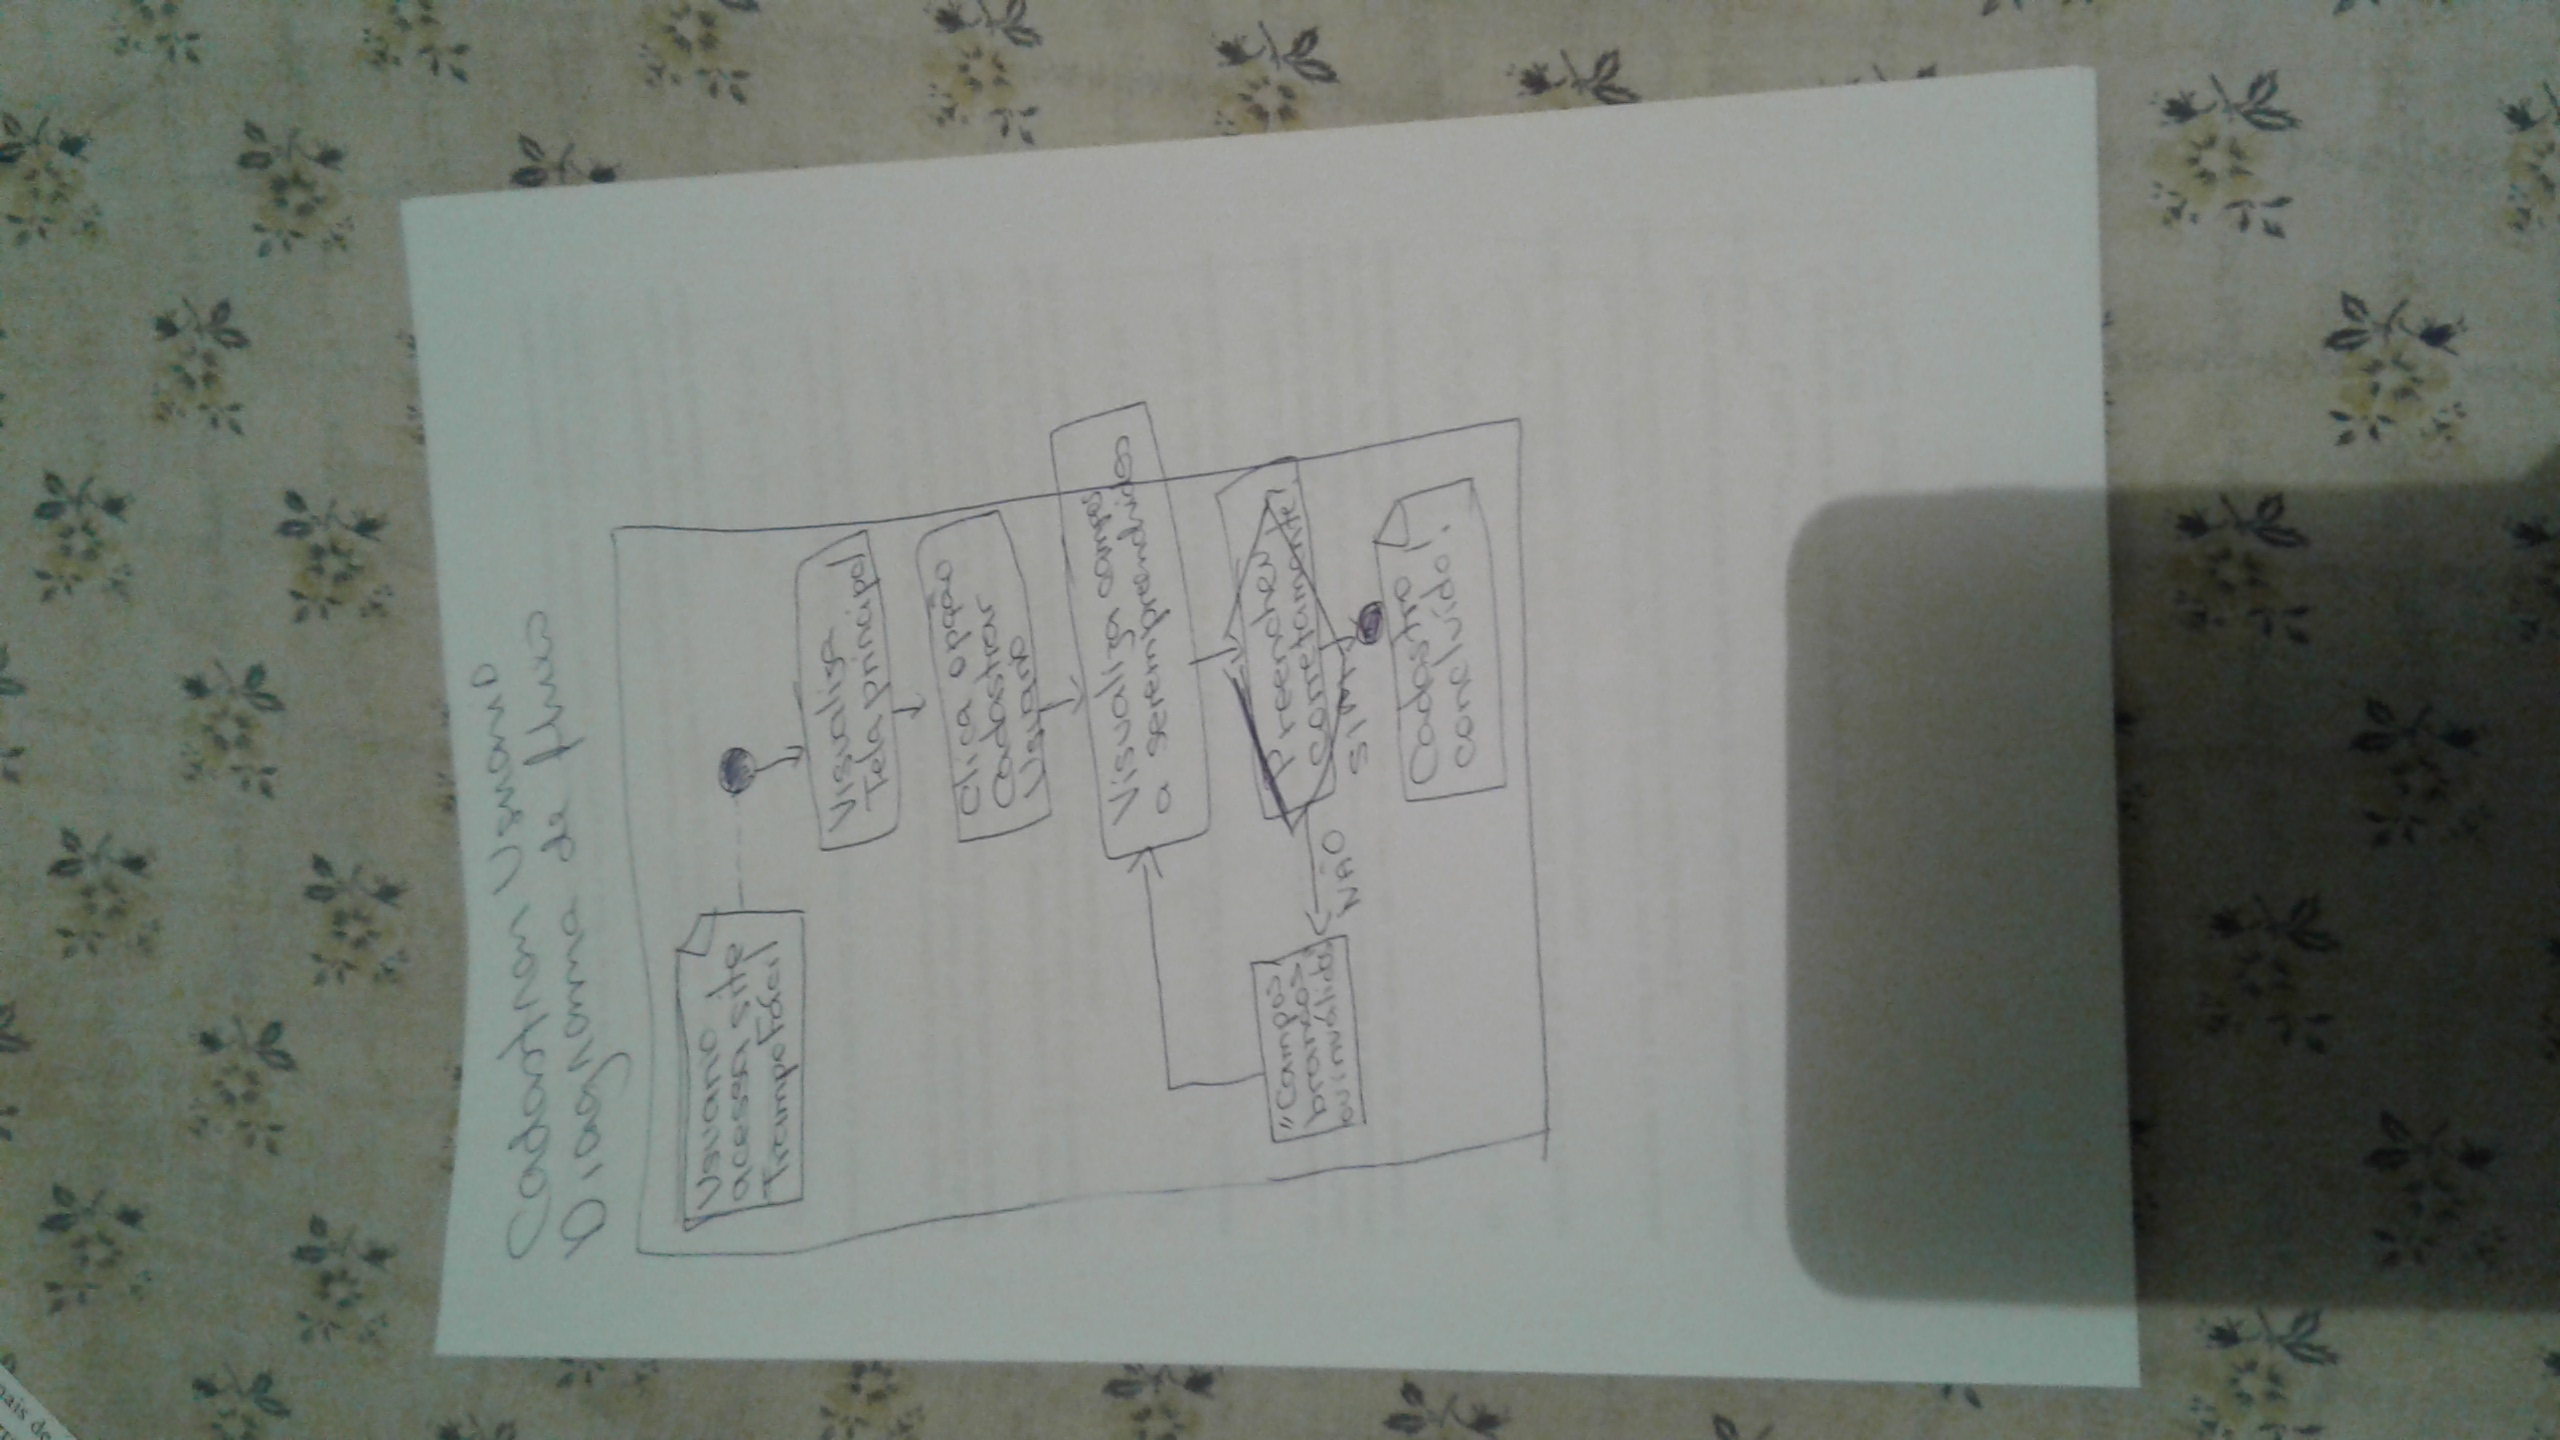 Cadastrar Usuario
Diagrama de fluxo
Usuario
acessa site
TrampoFácil
Visualiza
Tela principal
Clica opção
Cadastrar
Usuario
Visualiza campos
a serem preenchidos
Preencheu
corretamente?
"Campos
brancos
ou inválidos"
NÃO
SIM
Cadastro
concluído!